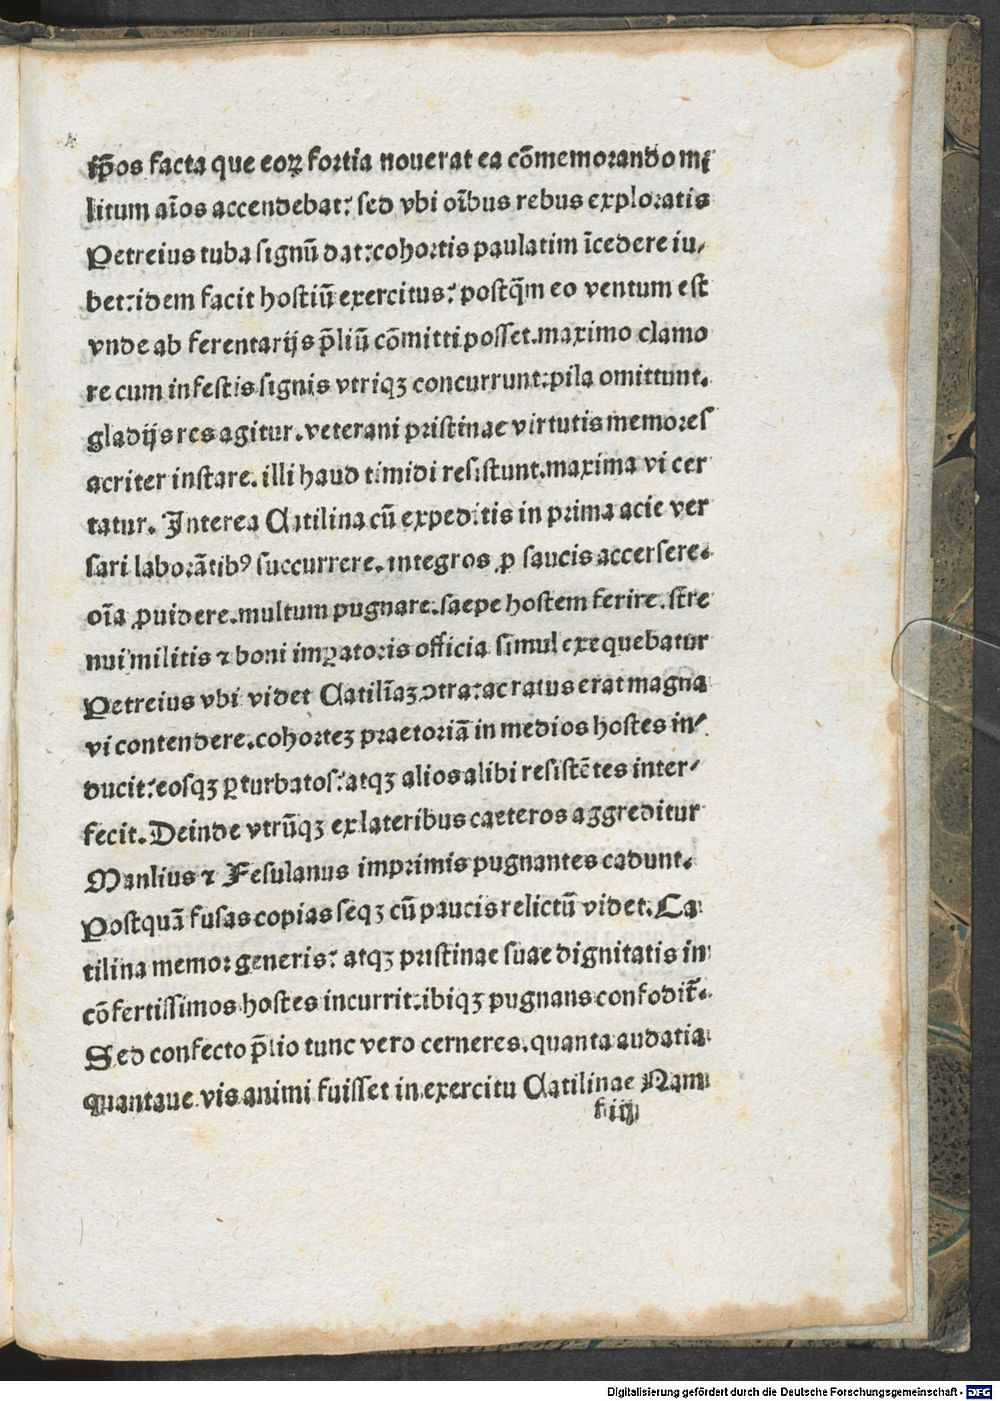 ip̄os facta que eoꝝ fortia nouerat ea cōmemorando mi
litum aīos accendebat: sed vbi oībus rebus exploratis
Petreius tuba signū dat: cohortis paulatim īcedere iu-
bet: idem facit hostiū exercitus: postq̄m eo ventum est
vnde ab ferentarijs p̄liū cōmitti posset. maximo clamo
re cum infestis signis vtriqꝫ concurrunt: pila omittunt.
gladijs res agitur. veterani pristinae virtutis memores
acriter instare. illi haud timidi resistunt. maxima vi cer
tatur. Interea Catilina cū expeditis in prima acie ver
sari laborātibꝰ succurrere. integros ꝓ saucis accersere.
oīa ꝓuidere. multum pugnare. saepe hostem ferire. stre
nui militis ⁊ boni imꝑatoris officia simul exequebatur
Petreius vbi videt Catilīaꝫ ↄtra: ac ratus erat magna
vi contendere. cohorteꝫ praetoriā in medios hostes in-
ducit: eosqꝫ ꝑturbatos: atqꝫ alios alibi resistētes inter-
fecit. Deinde vtrūqꝫ ex lateribus caeteros aggreditur
Manlius ⁊ Fesulanus imprimis pugnantes cadunt.
Postquā fusas copias seqꝫ cū paucis relictū videt. Ca
tilina memor generis: atqꝫ pristinae suae dignitatis in
cōfertissimos hostes incurrit: ibiqꝫ pugnans confodit̄.
Sed confecto p̄lio tunc vero cerneres. quanta audatia
quantaue vis animi fuisset in exercitu Catilinae Nam
f iij
Digitalisierung gefördert durch die Deutsche Forschungsgemeinschaft - DFG